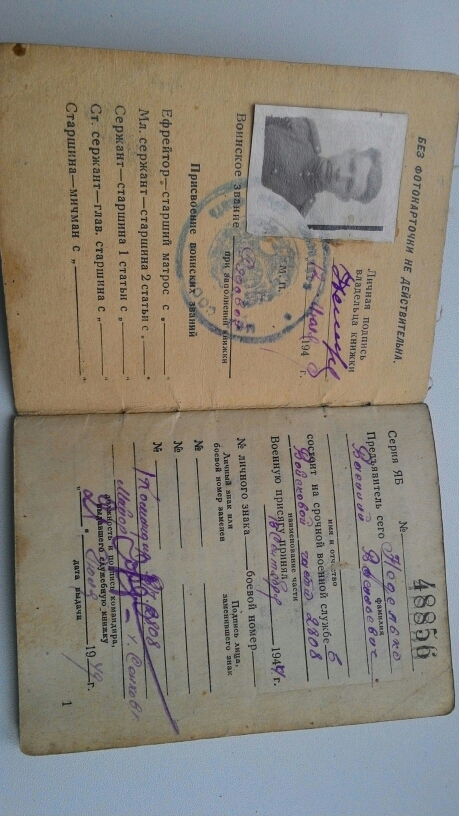 БЕЗ ФОТОКАРТОЧКИ НЕ ДЕЙСТВИТЕЛЬНА.
Личная подпись
владельца книжки
194 г.
М. П.
Воинское звание Рядовой
при заполнении книжки
Присвоение воинских званий
Ефрейтор—старший матрос с „
Мл. сержант—старшина 2 статьи с „
Сержант—старшина 1 статьи с „
Ст. сержант—глав. старшина с „
Старшина—мичман с „
Серия ЯБ № 48856
Предъявитель сего
фамилия
Василий Васильевич
имя и отчество
состоит на срочной военной службе в
Войсковой части 2808
наименование части
Военную присягу принял
1944 г.
№ личного знака боевой номер
Личный знак или
боевой номер заменен
Подпись лица,
заменившего знак
№
№
№
Командир 2808
Майор
Должность и подпись командира,
выдавшего служебную книжку
1949 г.
дата выдачи
1